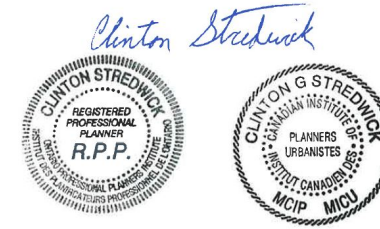 Clinton Stredwick
CLINTON STREDWICK
REGISTERED
PROFESSIONAL
PLANNER
R.P.P.
ONTARIO PROFESSIONAL PLANNERS INSTITUTE
INSTITUT DES PLANIFICATEURS PROFESSIONNEL DE L'ONTARIO
CLINTON G STREDWICK
CANADIAN INSTITUTE OF
PLANNERS
URBANISTES
INSTITUT CANADIEN DES
MCIP MICU